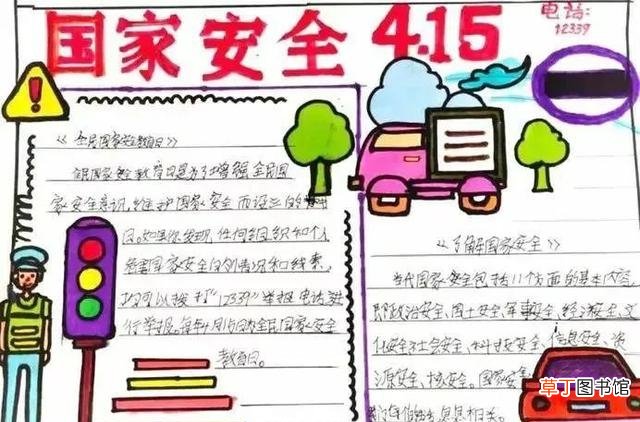 国家安全 4.15
电话:
12339
《全民国家安全教育日》
全民国家安全教育日是为了增强全民国
家安全意识,维护国家安全而设立的
日。如果你发现,任何组织和个人
危害国家安全的情况和线索,
均可以拨打"12339"举报电话进
行举报。每年4月15日为全民国家安全
教育日。
《了解国家安全》
当代国家安全包括11个方面的基本内容,
即政治安全、国土安全、军事安全、经济安全、文
化安全、社会安全、科技安全、信息安全、
源安全、核安全。国家安全
们每個 息息相关。
草丁图书馆